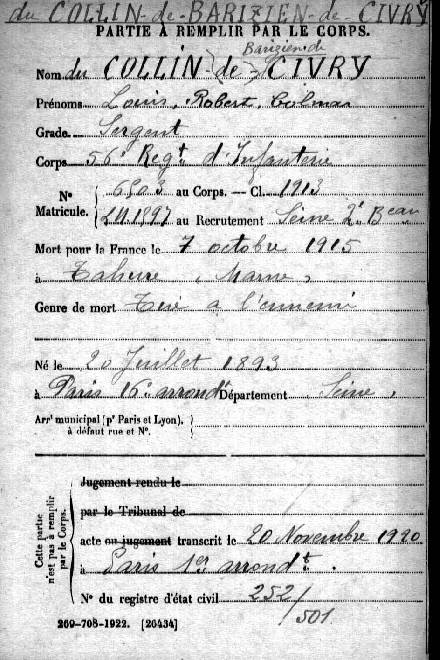 du COLLIN-de-BARIZIEN-de-CIVRY
PARTIE À REMPLIR PAR LE CORPS.
Barizien de
Nom du COLLIN de CIVRY
Prénoms Louis, Robert, Colmar
Grade Sergent
Corps 56e Regt d'Infanterie
N° 6503 au Corps. — Cl. 1913
Matricule. 1897 au Recrutement Seine 2e Beau
Mort pour la France le 7 octobre 1915
à Tahure, Marne,
Genre de mort Tué a l'ennemi
Né le 20 Juillet 1893
à Paris 16e arrondt Département Seine,
Arrt municipal (pr Paris et Lyon),
à défaut rue et N°.
Cette partie n'est pas à remplir par le Corps.
Jugement rendu le
par le Tribunal de
acte ou jugement transcrit le 20 Novembre 1920
à Paris 1er arrondt.
N° du registre d'état civil 252/
501
269-708-1922. [26434]